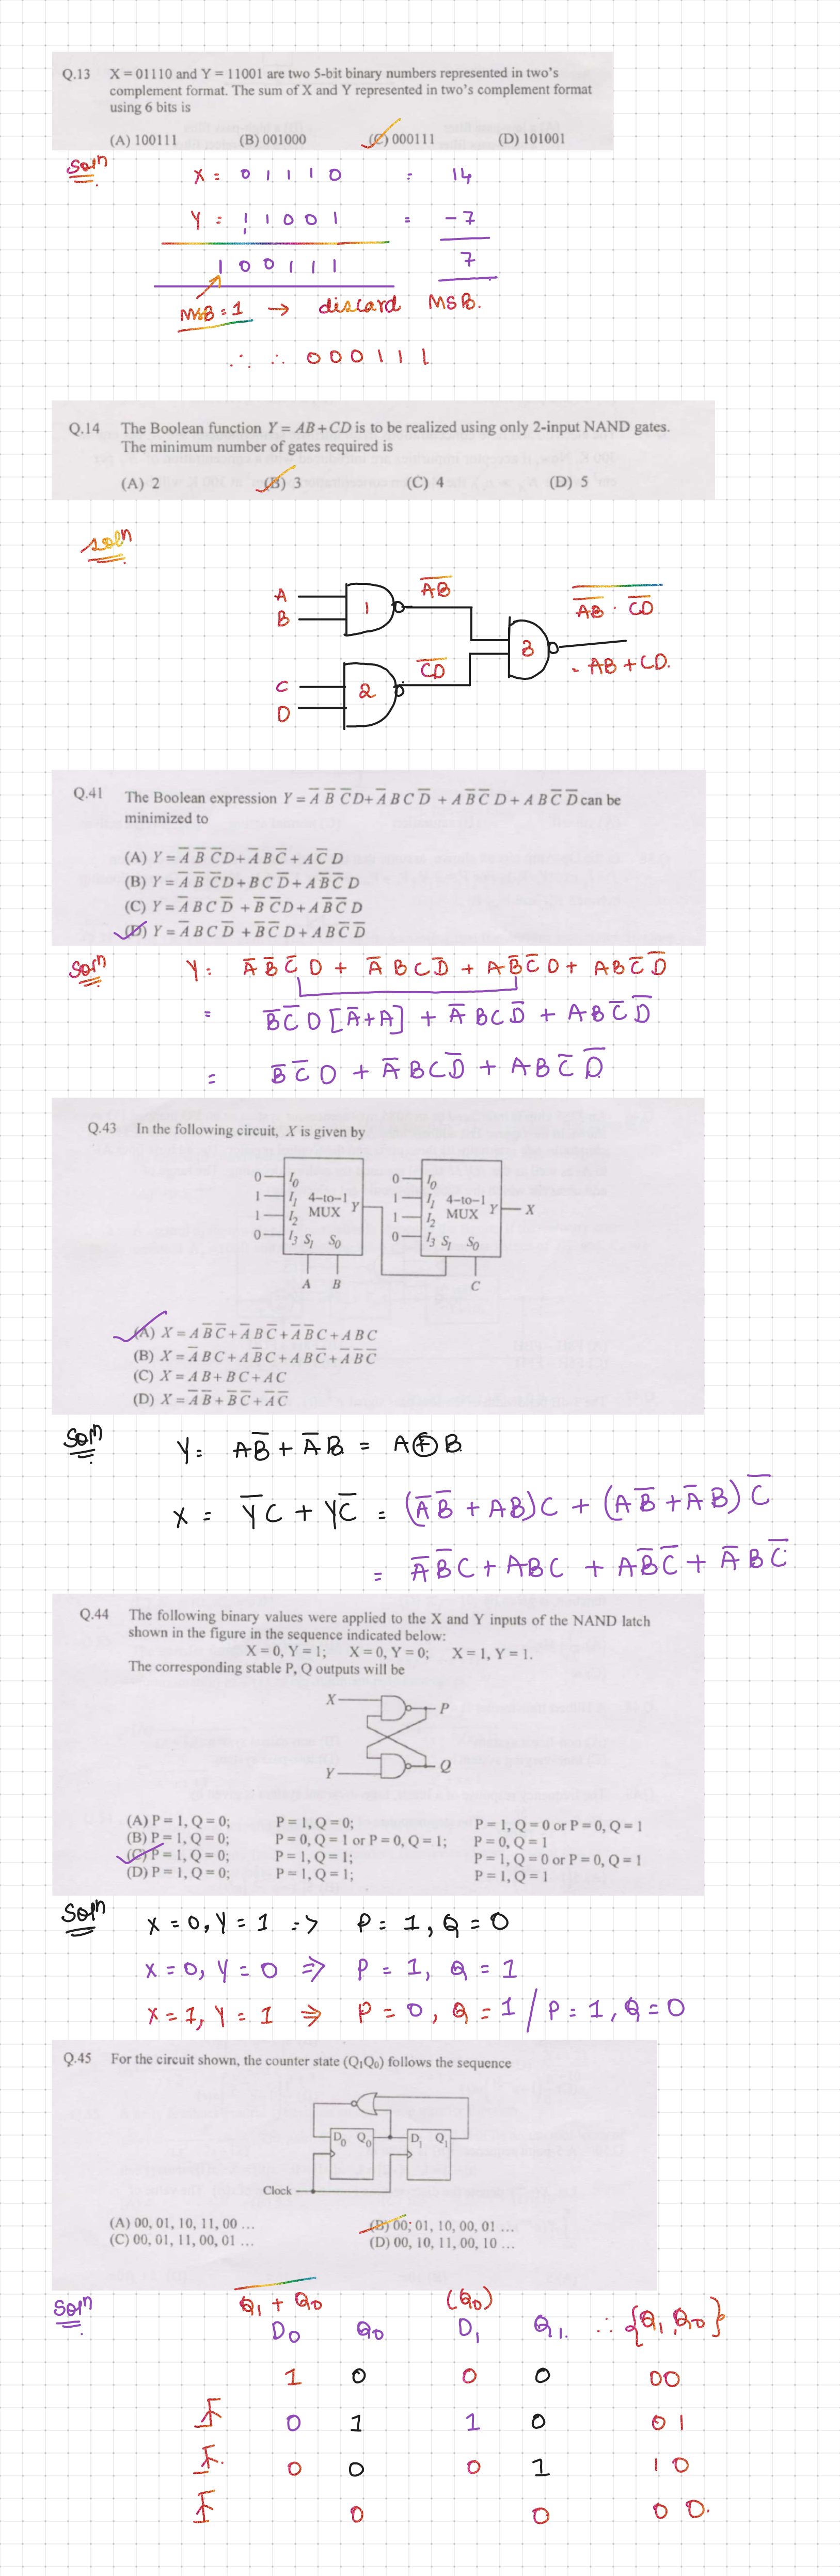 Q.13 X = 01110 and Y = 11001 are two 5-bit binary numbers represented in two's
complement format. The sum of X and Y represented in two's complement format
using 6 bits is
(A) 100111 (B) 001000 (C) 000111 (D) 101001
Soln
X = 0 1 1 1 0 = 14
Y = 1 1 0 0 1 = -7
1 0 0 1 1 1 7
MSB = 1 → discard MSB.
∴ ∴ 0 0 0 1 1 1
Q.14 The Boolean function Y = AB + CD is to be realized using only 2-input NAND gates.
The minimum number of gates required is
(A) 2 (B) 3 (C) 4 (D) 5
soln
A
B
1
A̅B̅
C
D
2
C̅D̅
3
A̅B̅ · C̅D̅
= AB + CD.
Q.41 The Boolean expression Y = A̅ B̅ C̅ D + A̅ B C D̅ + A B̅ C̅ D + A B C̅ D̅ can be
minimized to
(A) Y = A̅ B̅ C̅ D + A̅ B C̅ + A C̅ D
(B) Y = A̅ B̅ C̅ D + B C D̅ + A B̅ C̅ D
(C) Y = A̅ B C D̅ + B̅ C̅ D + A B̅ C̅ D
(D) Y = A̅ B C D̅ + B̅ C̅ D + A B C̅ D̅
Soln Y = A̅ B̅ C̅ D + A̅ B C D̅ + A B̅ C̅ D + A B C̅ D̅
= B̅ C̅ D [A̅ + A] + A̅ B C D̅ + A B C̅ D̅
= B̅ C̅ D + A̅ B C D̅ + A B C̅ D̅
Q.43 In the following circuit, X is given by
0 I₀
1 I₁ 4-to-1
1 I₂ MUX Y
0 I₃ S₁ S₀
A B
0 I₀
1 I₁ 4-to-1
1 I₂ MUX Y X
0 I₃ S₁ S₀
C
(A) X = A B̅ C̅ + A̅ B C̅ + A̅ B̅ C + A B C
(B) X = A̅ B C + A B̅ C + A B C̅ + A̅ B̅ C̅
(C) X = A B + B C + A C
(D) X = A̅ B̅ + B̅ C̅ + A̅ C̅
Soln Y = A B̅ + A̅ B = A ⊕ B
X = Y̅ C + Y C̅ = (A̅ B̅ + AB) C + (A B̅ + A̅ B) C̅
= A̅ B̅ C + ABC + A B̅ C̅ + A̅ B C̅
Q.44 The following binary values were applied to the X and Y inputs of the NAND latch
shown in the figure in the sequence indicated below:
X = 0, Y = 1; X = 0, Y = 0; X = 1, Y = 1.
The corresponding stable P, Q outputs will be
X P
Y Q
(A) P = 1, Q = 0; P = 1, Q = 0; P = 1, Q = 0 or P = 0, Q = 1
(B) P = 1, Q = 0; P = 0, Q = 1 or P = 0, Q = 1; P = 0, Q = 1
(C) P = 1, Q = 0; P = 1, Q = 1; P = 1, Q = 0 or P = 0, Q = 1
(D) P = 1, Q = 0; P = 1, Q = 1; P = 1, Q = 1
Soln X = 0, Y = 1 => P = 1, Q = 0
X = 0, Y = 0 ⇒ P = 1, Q = 1
X = 1, Y = 1 ⇒ P = 0, Q = 1 / P = 1, Q = 0
Q.45 For the circuit shown, the counter state (Q₁Q₀) follows the sequence
D₀ Q₀ D₁ Q₁
Clock
(A) 00, 01, 10, 11, 00 ... (B) 00, 01, 10, 00, 01 ...
(C) 00, 01, 11, 00, 01 ... (D) 00, 10, 11, 00, 10 ...
Soln Q̅₁̅ ̅+̅ ̅Q̅₀ (Q₀)
D₀ Q₀ D₁ Q₁. ∴ {Q₁, Q₀}
1 0 0 0 00
0 1 1 0 01
0 0 0 1 10
0 0 00.